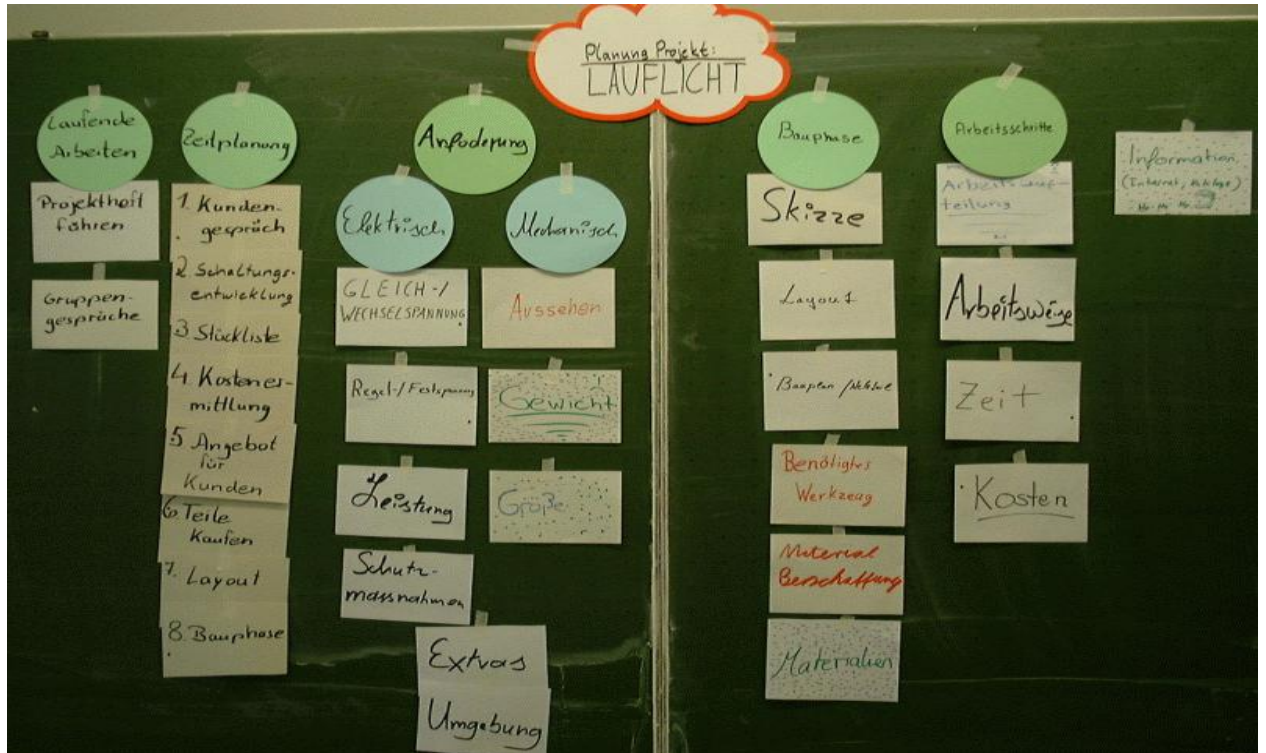 Planung Projekt:
LAUFLICHT
Laufende
Arbeiten
Projektheft
führen
Gruppen-
gespräche
Zeitplanung
1. Kunden-
gespräch
2. Schaltungs-
entwicklung
3. Stückliste
4. Kostener-
mittlung
5. Angebot
für
Kunden
6. Teile
Kaufen
7. Layout
8. Bauphase
Anfoderung
Elektrisch
GLEICH-/
WECHSELSPANNUNG
Regel-/Festspannung
Leistung
Schutz-
massnahmen
Extras
Umgebung
Mechanisch
Aussehen
Gewicht
Größe
Bauphase
Skizze
Layout
Bauplan /
Benötigtes
Werkzeug
Material
Materialien
Arbeitsschritte
Arbeitsauf-
teilung
Arbeitsweise
Zeit
Kosten
Information
(Internet,